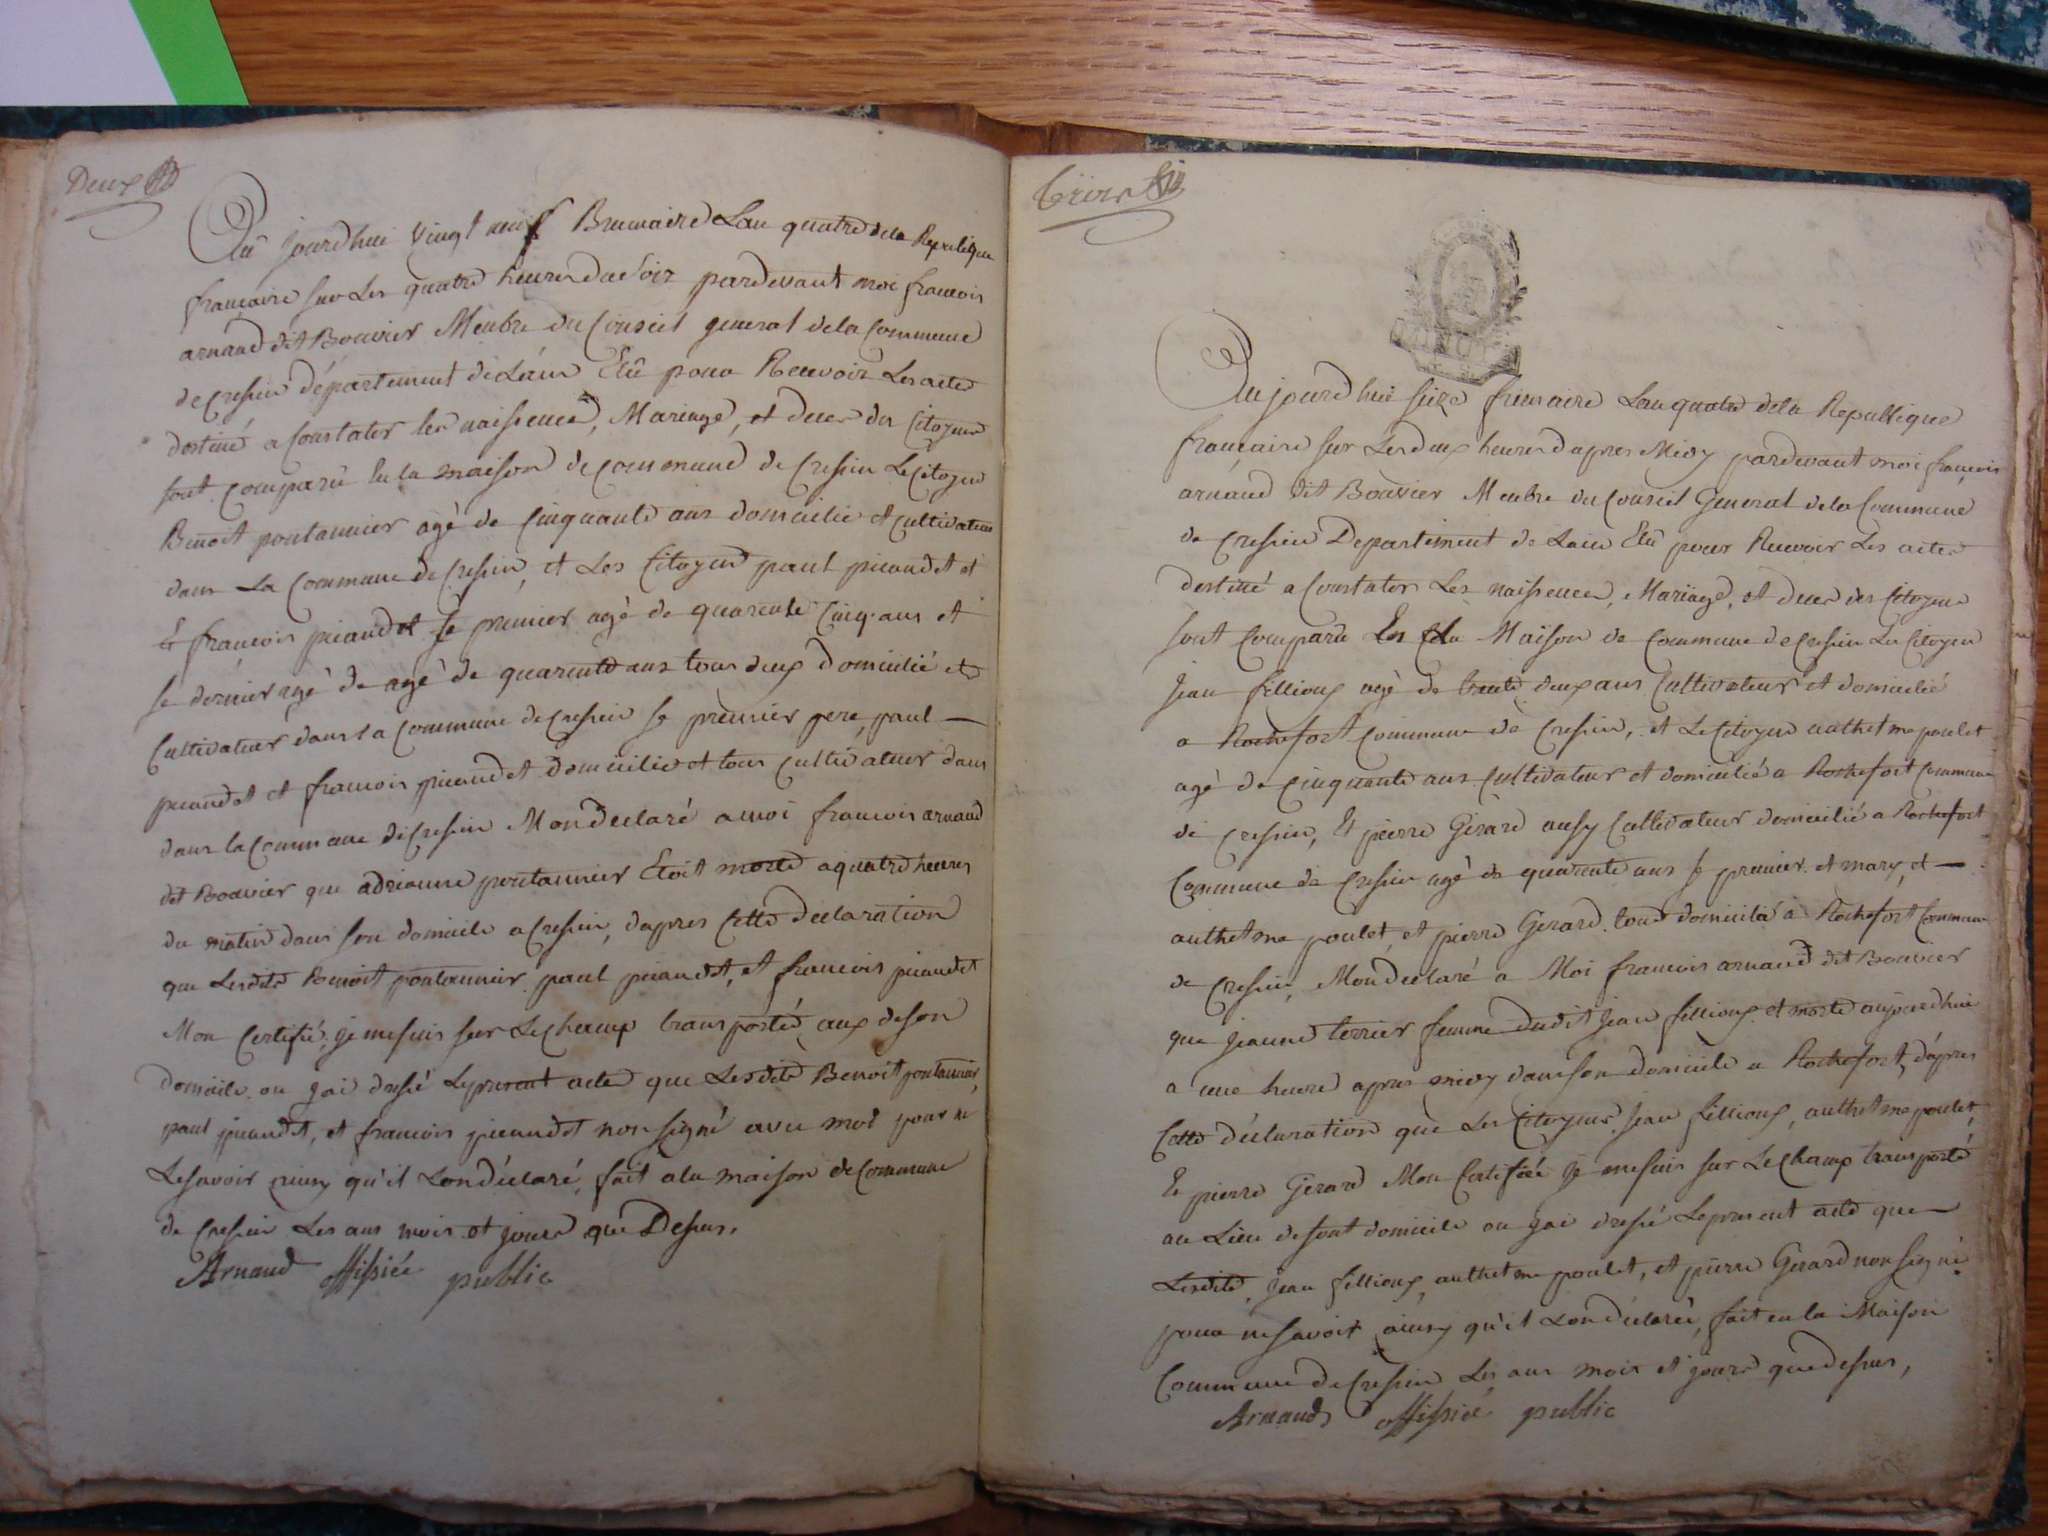 Deux
Au jourdhui vingt neuf Brumaire Lan quatre dela Republique
francaire sur Les quatre heures du Soir pardevant moi francois
arnaud dit Bouvier Menbre du Conseil general dela Commune
de Cressin département de Láin Elû pour Recevoir Les acte
destiné a Constater les naissence, Mariage, et deces des Citoyens
sont comparû En la maison de commune de Cressin Le Citoyen
Benoit pontannier agé de Cinquante ans domicilie et Cultivateur
dans La Commune de Cressin, et Les Citoyens paul picaudet et
Et francois picaudet Le premier agé de quarente Cinq ans et
Le dernier agé de agé de quarente ans tous deux domicilié et
Cultivateur dans la Commune de Cressin Le premier pere, paul —
picaudet et francois picaudet domicilié et tous cultivateur dans
dans la Commune de Cressin Mon declaré a moi francois arnaud
dit Bouvier que adrianne pontannier Etoit morte a quatre heures
du matin dans son domicile a Cressin, dapres Cette declaration
que Lesdits Benoit pontannier paul picaudet, et francois picaudet
Mon Certifié, je mesuis sur Lechamp transporté, aux deson
domicile ou jai dressé Lepresent acte que Lesdits Benoit pontannier,
paul picaudet, et francois picaudet non signé avec moi pour ne
Lesavoir ainsy qu'il Londéclaré, fait ala maison de Commune
de Cressin Les ans mois et jours que Dessus.
Arnaud offissié public
Trois
Aujourdhui Seize frimaire Lan quatre dela Republique
françaire sur Les deux heures dapres Midy pardevant moi françois
arnaud dit Bouvier Menbre du Conseil General dela Commune
de Cressin Departiment de Lain Elû pour Recevoir Les actes
destiné a Constater Les naissences, Mariage, et deces des Citoyens
sont Comparu En La Maison de Commune de Cressin Le Citoyen
Jean fillioux agé de trente deux ans Cultivateur et domicilié
a Rochefort Commune de Cressin, et Le Citoyen anthelme poulet
agé de Cinquante ans Cultivateur et domicilié a Rochefort Commune
de Cressin, Et pierre Gerard aussy Cultivateur domicilié a Rochefort
Commune de Cressin agé de quarente ans Le premier et mary, et —
anthelme poulet, et pierre Gerard tous domicilié à Rochefort Commune
de Cressin, Mon declaré a Moi francois arnaud dit Bouvier
que Jeanne terrier femme dudit Jean fillioux et morte aujourdhui
a une heure apres midy dans son domicile a Rochefort, d'apres
Cette déclaration que Les Citoyens Jean fillioux, anthelme poulet,
Et pierre Gerard Mon Certifiée je mesuis sur Lechamp transporté
au Lieu desont domicile ou jai dressé Lepresent acte que
Lesdits, Jean fillioux, anthelme poulet, et pierre Gerard non signé
pour nesavoir ainsy qu'il Londéclaré, fait en la Maison
Commune de Cressin Les ans mois et jours que dessus,
Arnaud offissié public